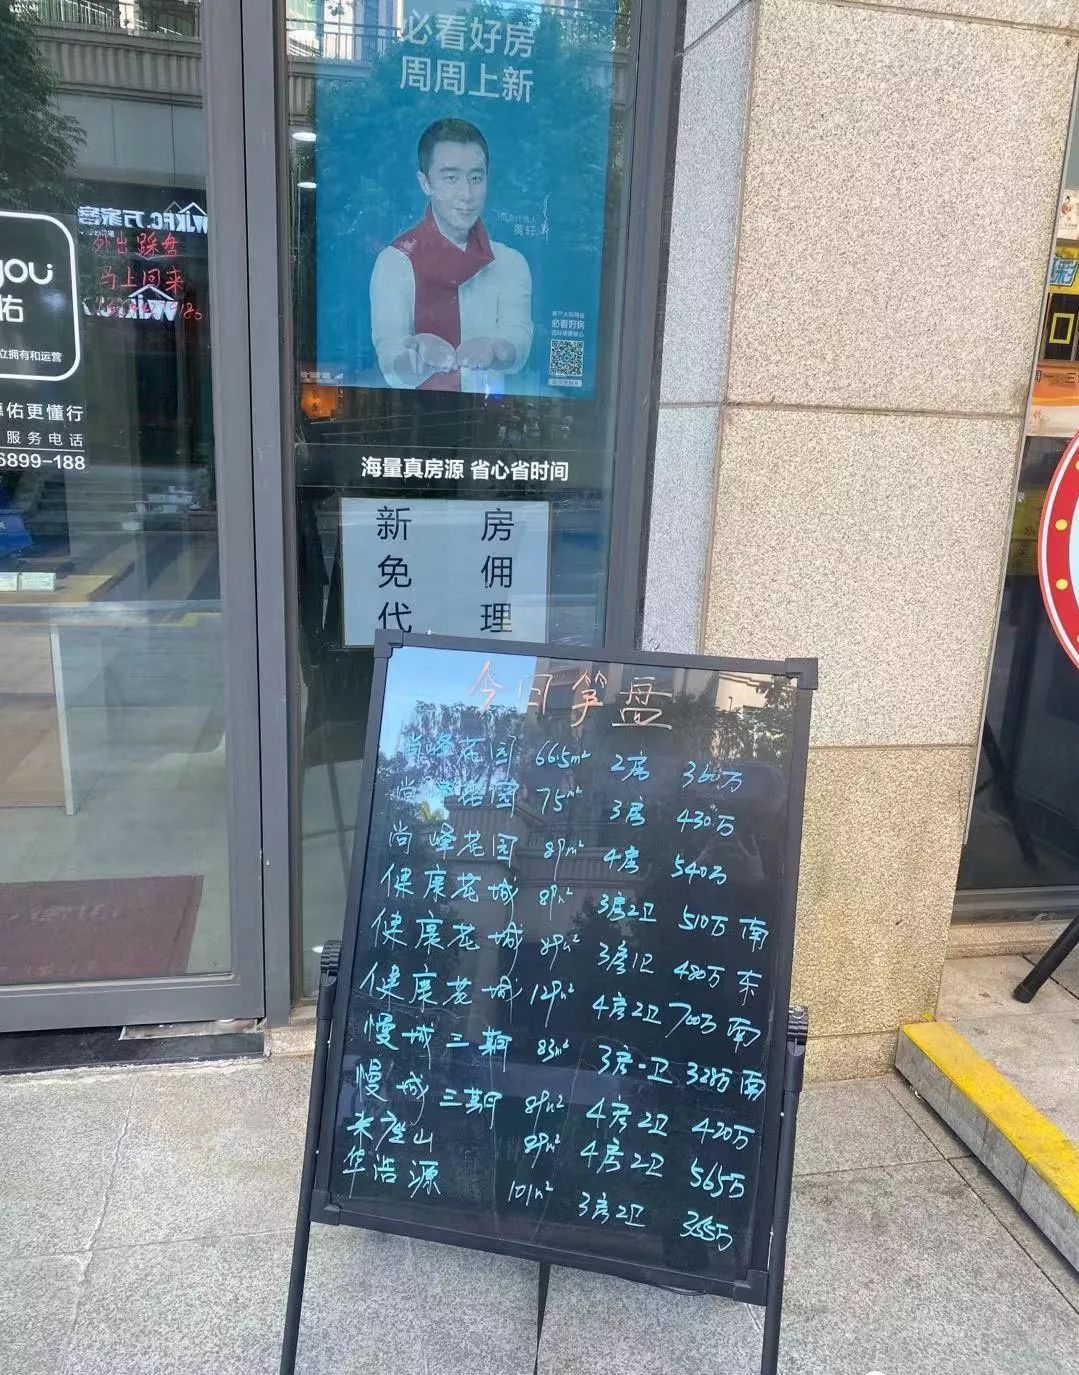 必看好房
周周上新
黄轩
必看好房
万家客
外出踩盘
马上回来
you
佑
立拥有和运营
德佑更懂行
服务电话
6899-188
海量真房源 省心省时间
新 房
免 佣
代 理
今日笋盘
尚峰花园 66.5m² 2房 360万
尚峰花园 75m² 3房 430万
尚峰花园 89m² 4房 540万
健康花城 89m² 3房2卫 510万 南
健康花城 89m² 3房1卫 480万 东
健康花城 129m² 4房2卫 700万 南
慢城三期 83m² 3房一卫 328万 南
慢城三期 89m² 4房2卫 420万
米座山 89m² 4房2卫 565万
华浩源 101m² 3房2卫 365万
彩